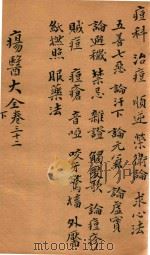 痘科 治痘 順逆 榮衛論 求心法
五善七惡 論汗下 論元氣 論虛實
論避穢 禁忌 雜證 歌 論痘疹
賊痘 痘瘡 音啞 咬牙驚搐 外靨
紙撚照 眼藥法
瘍醫大全卷三十二
下